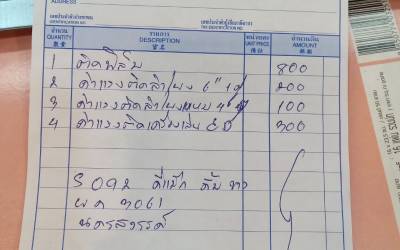 ADDRESS
เลขประจำตัวประชาชน
IDENTIFICATION NO.
เลขประจำตัวผู้เสียภาษีอากร
TAX IDENTIFICATION NO.
จำนวน รายการ หน่วยละ จำนวนเงิน
QUANTITY DESCRIPTION UNIT PRICE AMOUNT
數量 貨名 價格 銀額
1 ติดฟิล์ม 800
2 ค่าแรงติดลำโพง 6" 200
3 ค่าแรงติดลำโพง 100
4 ค่าแรงติดเครื่องเล่น CD 300
5092 ดีแม็ก
3061
นครสวรรค์